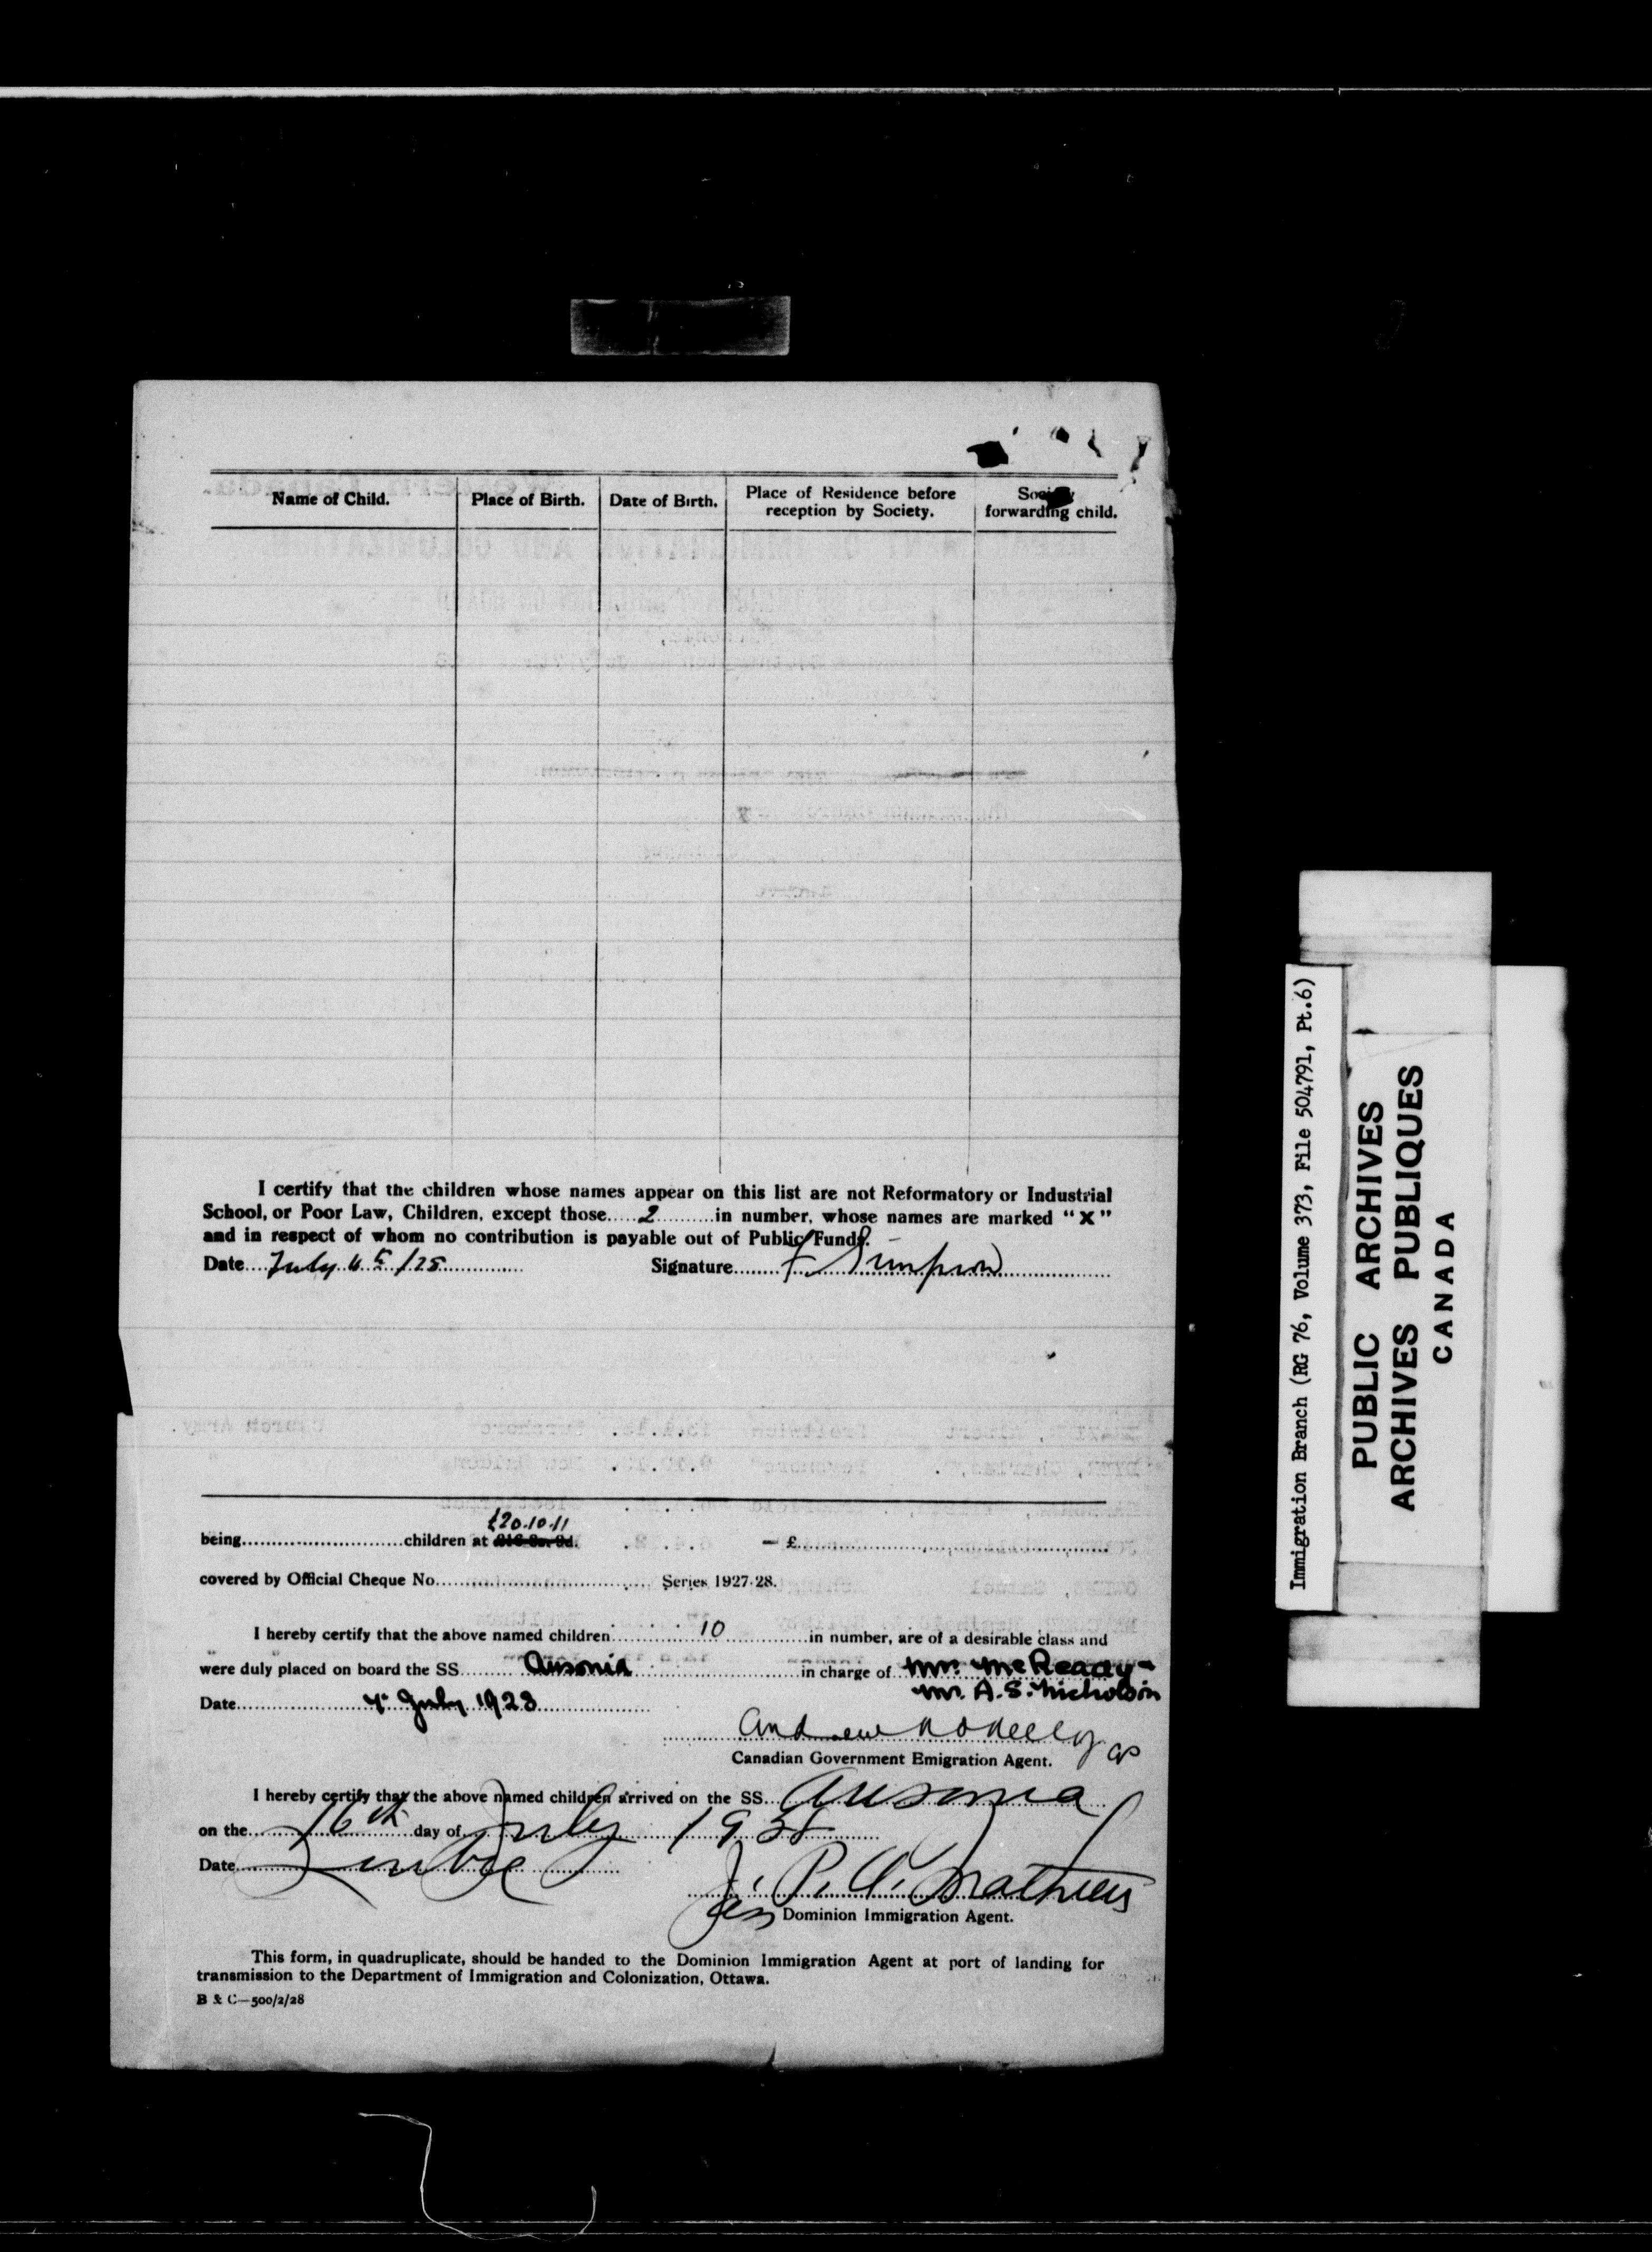 Name of Child. Place of Birth. Date of Birth. Place of Residence before reception by Society. Society forwarding child.
I certify that the children whose names appear on this list are not Reformatory or Industrial
School, or Poor Law, Children, except those.....2..........in number, whose names are marked "X"
and in respect of whom no contribution is payable out of Public Funds.
Date....July Signature........ Simpson
£20.10.11
being...........................children at — £
covered by Official Cheque No. Series 1927-28.
I hereby certify that the above named children 10 in number, are of a desirable class and
were duly placed on board the SS. Ausonia in charge of Mr. McReady -
Mr. A. S. Nicholson
Date July 1928
Andrew
Canadian Government Emigration Agent.
I hereby certify that the above named children arrived on the SS. Ausonia
on the 16th day of July
Date
J. P. A. Mathieu
Dominion Immigration Agent.
This form, in quadruplicate, should be handed to the Dominion Immigration Agent at port of landing for
transmission to the Department of Immigration and Colonization, Ottawa.
B & C—500/2/28
Immigration Branch (RG 76, Volume 373, File 504791, Pt.6)
PUBLIC ARCHIVES
ARCHIVES PUBLIQUES
CANADA